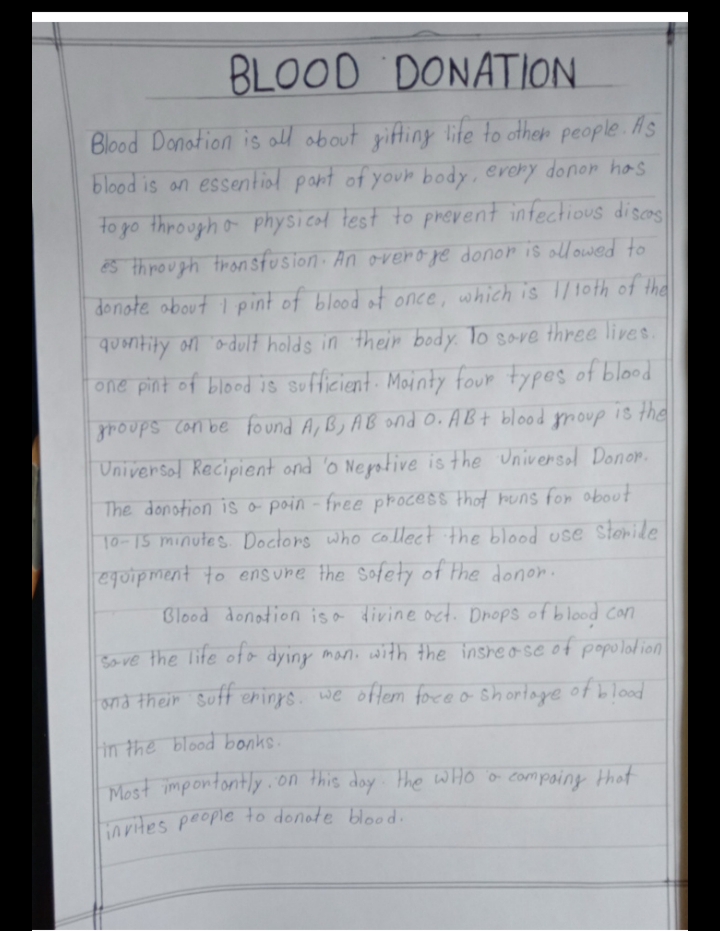 BLOOD DONATION
Blood Donation is all about gifting life to other people. As
blood is an essential part of your body, every donor has
to go through a physical test to prevent infectious diseas
es through transfusion. An average donor is allowed to
donate about 1 pint of blood at once, which is 1/10th of the
quantity an adult holds in their body. To save three lives.
one pint of blood is sufficient. Mainty four types of blood
groups can be found A, B, AB and O. AB+ blood group is the
Universal Recipient and 'O Negative is the Universal Donor.
The donation is a pain-free process that runs for about
10-15 minutes. Doctors who collect the blood use steride
equipment to ensure the safety of the donor.
Blood donation is a divine act. Drops of blood can
save the life of a dying man. with the insrease of population
and their sufferings. we oftem face a shortage of blood
in the blood banks.
Most importantly, on this day. the WHO a compaing that
invites people to donate blood.